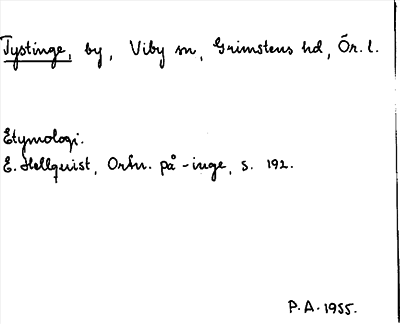 Tystinge, by, Viby sn, Grimstens hd, Ör. l.
Etymologi.
E. Hellquist, Ortn. på -inge, s. 192.
P.A. 1955.